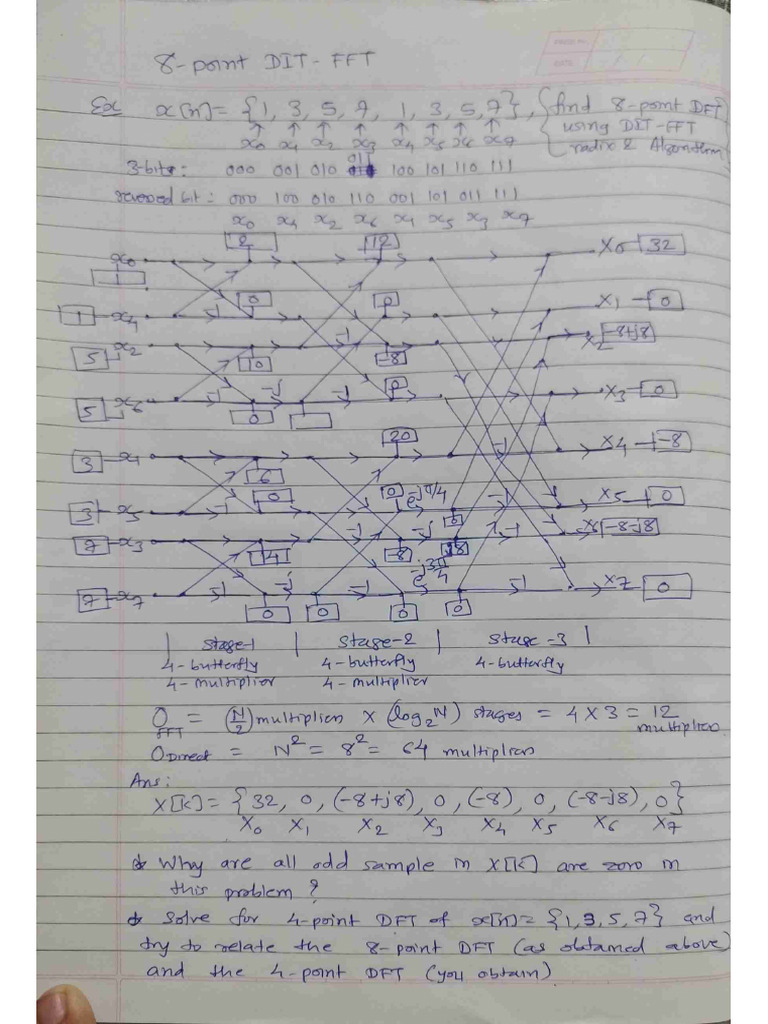 8-point DIT-FFT
PAGE No.
DATE
Ex x[n] = {1, 3, 5, 7, 1, 3, 5, 7}, {find 8-point DFT
using DIT-FFT
radix 2 Algorithm
↑ ↑ ↑ ↑ ↑ ↑ ↑ ↑
x0 x1 x2 x3 x4 x5 x6 x7
3-bits: 000 001 010 011 100 101 110 111
reversed bit: 000 100 010 110 001 101 011 111
x0 x4 x2 x6 x1 x5 x3 x7
2 12
x0 X0 32
1
0 0
1 x4 -1 X1 0
-8+j8
5 x2 -1 X2
10 -8
0
5 x6 -1 -j -1 X3 0
0
20
3 x1 X4 -8
6 -1
0 0 e^-jπ/4
3 x5 -1 -1 X5 0
0
7 x3 -1 -j -1 X6 -8-j8
4 -8 j8
e^-j3π/4
7 x7 -1 -j -1 -1 X7 0
0 0 0 0
| Stage-1 | Stage-2 | Stage-3 |
4-butterfly 4-butterfly 4-butterfly
4-multiplier 4-multiplier
O_FFT = (N/2) multipliers × (log2N) stages = 4 × 3 = 12
multipliers
O_Direct = N² = 8² = 64 multipliers
Ans:
X[k] = {32, 0, (-8+j8), 0, (-8), 0, (-8-j8), 0}
X0 X1 X2 X3 X4 X5 X6 X7
* Why are all odd sample in X[k] are zero in
this problem?
* Solve for 4-point DFT of x[n] = {1, 3, 5, 7} and
try to relate the 8-point DFT (as obtained above)
and the 4-point DFT (you obtain)